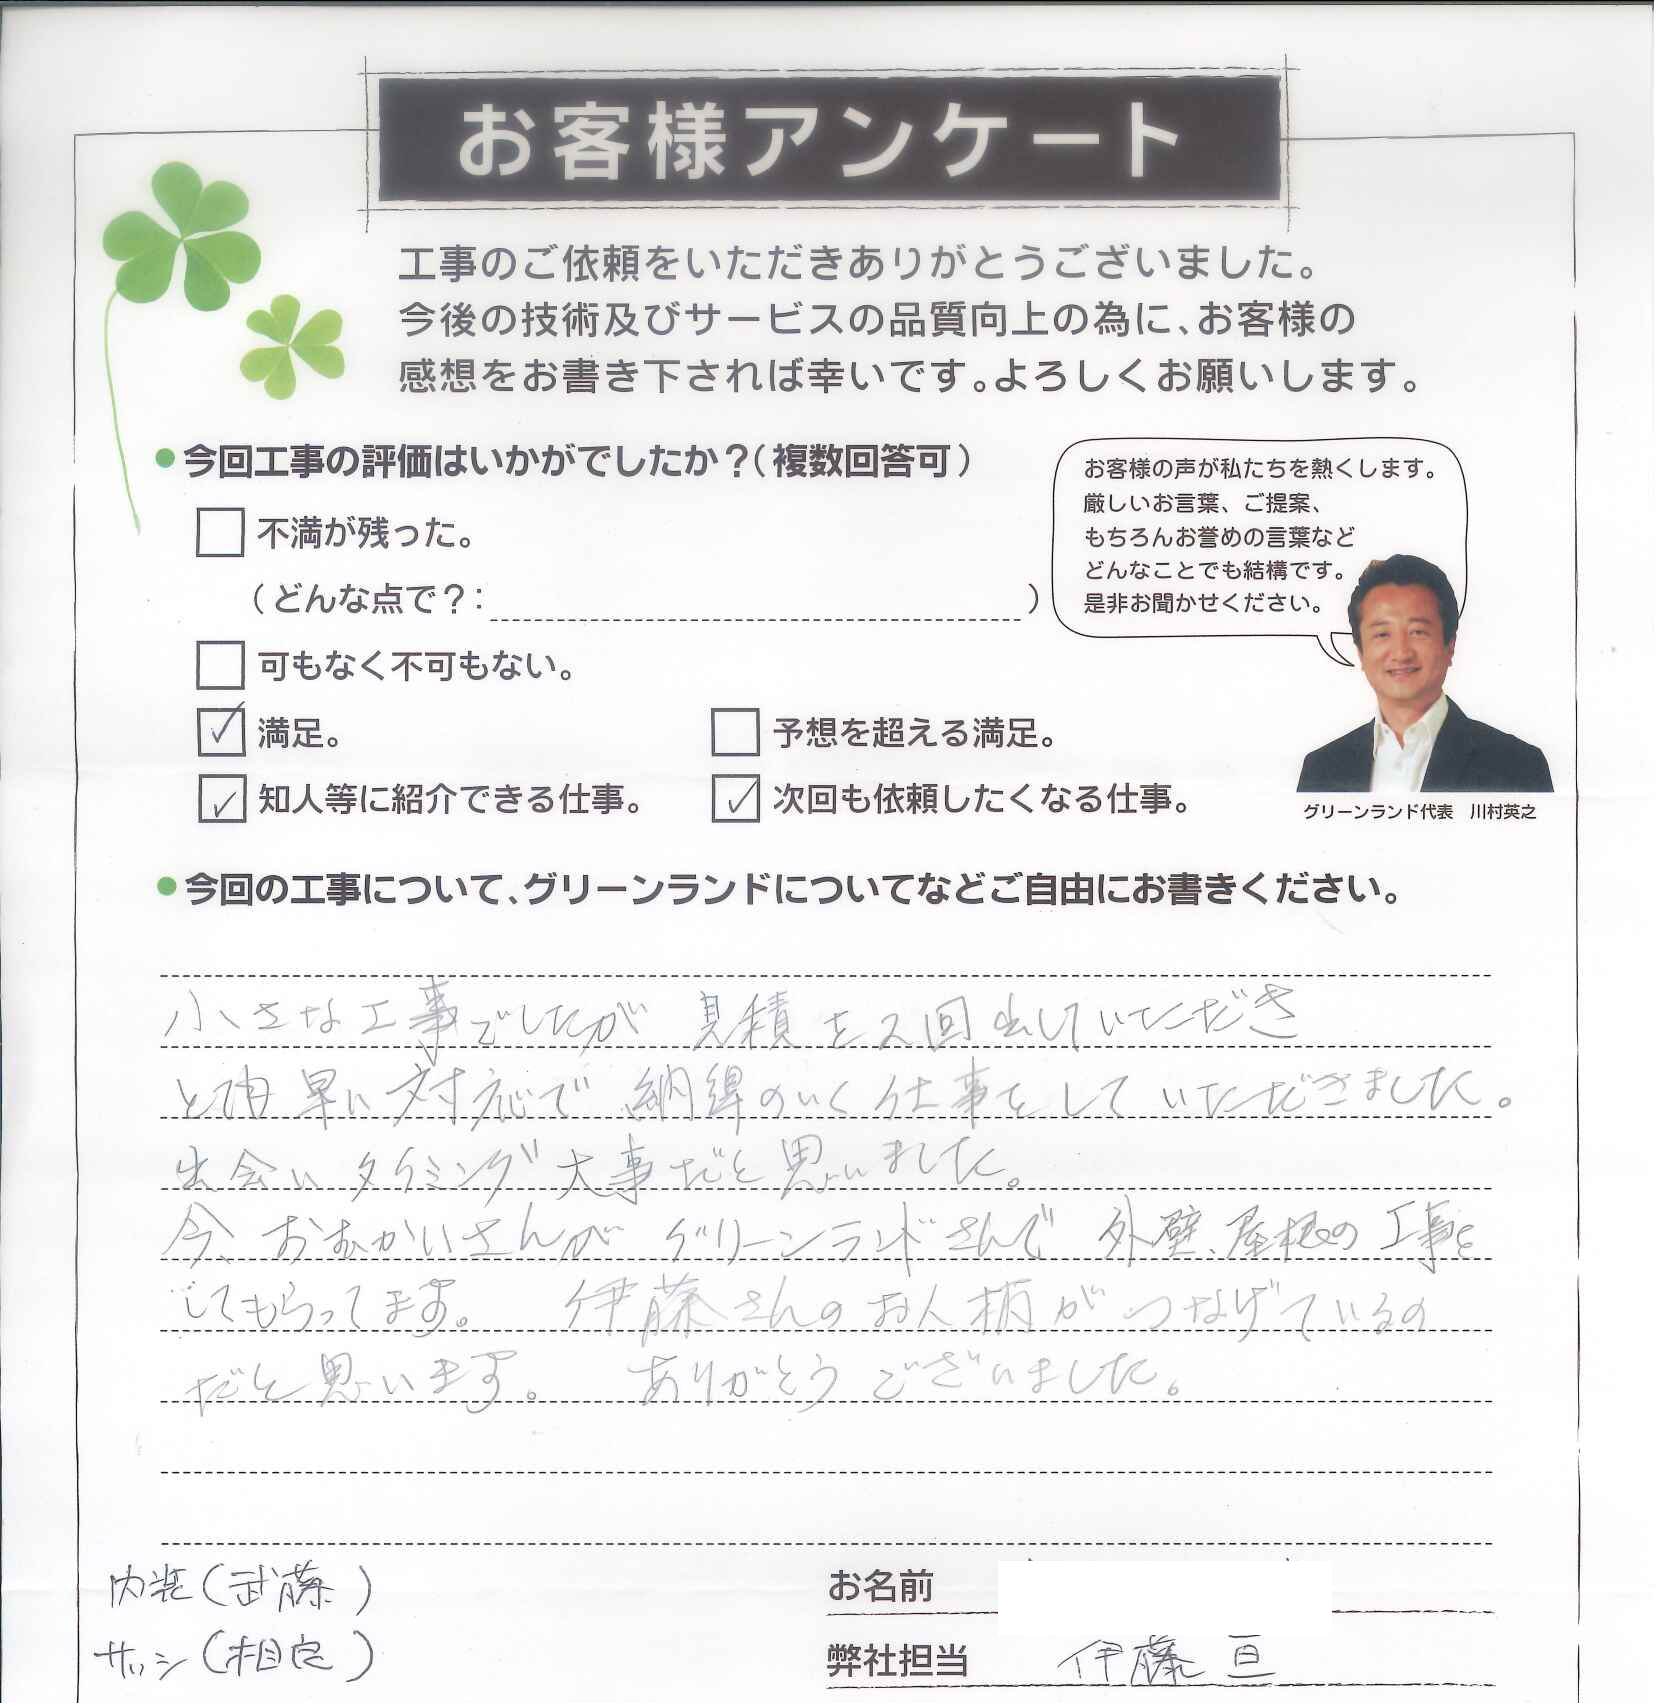 お客様アンケート
工事のご依頼をいただきありがとうございました。
今後の技術及びサービスの品質向上の為に、お客様の
感想をお書き下されば幸いです。よろしくお願いします。
今回工事の評価はいかがでしたか？（複数回答可）
不満が残った。
（どんな点で？：　）
可もなく不可もない。
満足。
予想を超える満足。
知人等に紹介できる仕事。
次回も依頼したくなる仕事。
お客様の声が私たちを熱くします。
厳しいお言葉、ご提案、
もちろんお誉めの言葉など
どんなことでも結構です。
是非お聞かせください。
グリーンランド代表　川村英之
今回の工事について、グリーンランドについてなどご自由にお書きください。
小さな工事でしたが 見積を2回出していただき
と 早い対応で 納得のいく仕事をして いただきました。
出会い タイミング 大事だと思いました。
今、おむかいさんが グリーンランドさんで 外壁、屋根の工事を
してもらってます。 伊藤さんのお人柄が つなげているの
だと思います。 ありがとう ございました。
内装（武藤）
サッシ（相良）
お名前
弊社担当 伊藤 亘